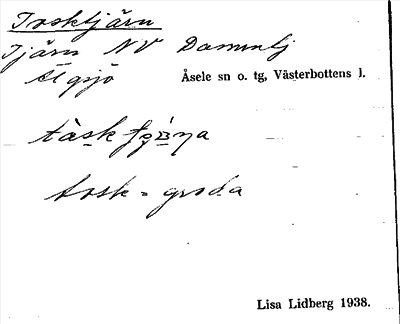 Tosktjärn
Tjärn NV Dammtj
Älgsjö
Åsele sn o. tg, Västerbottens l.
tosk = groda
Lisa Lidberg 1938.